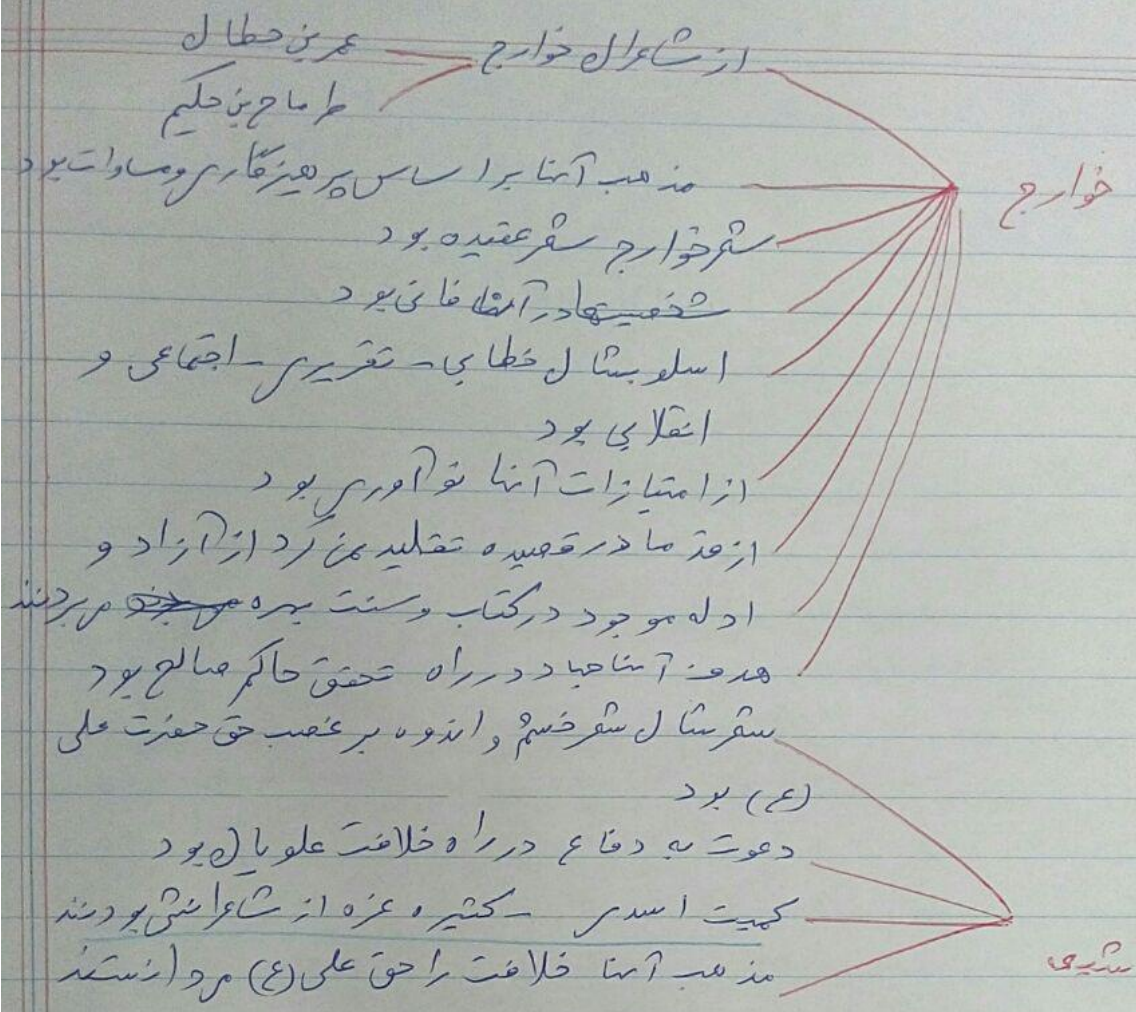 از شاعران خوارج عمر بن حطان
طرماح بن حکیم
خوارج
مذهب آنها بر اساس پرهیزگاری و مساوات بود
شعر خوارج شعر عقیده بود
شخصیتها در آنها فانی بود
اسلوبشان خطابی - تقریری - اجتماعی و
انقلابی بود
از امتیازات آنها نوآوری بود
از قدما در قصیده تقلید نمی کرد از آزاد و
ادله موجود در کتاب و سنت بهره می بردند
هدف آنها جهاد در راه تحقق حاکم صالح بود
شعرشان شعر خشم و اندوه بر غصب حق حضرت علی
(ع) بود
دعوت به دفاع در راه خلافت علویان بود
کمیت اسدی - کثیره عزه از شاعرانش بودند
شیعی
مذهب آنها خلافت را حق علی (ع) می دانستند